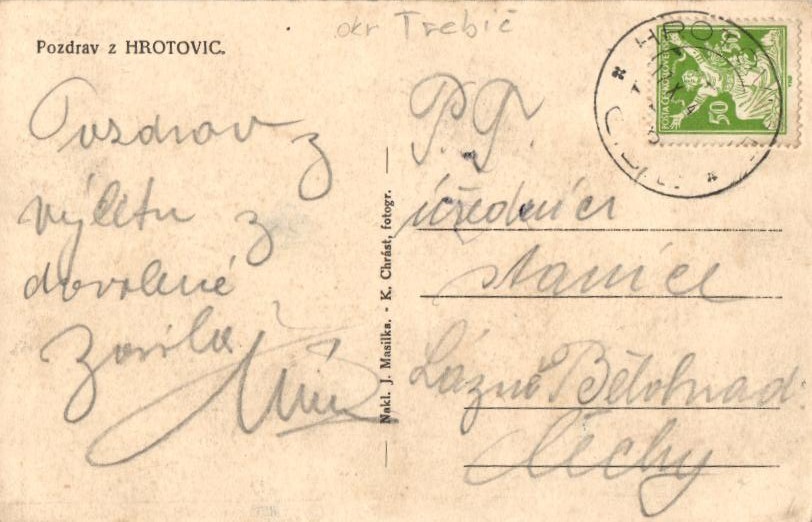 okr Třebíč
Pozdrav z HROTOVIC.
Pozdrav z
výletu z
dovolené
zasílá
P.T.
úředníci
stanice
Lázně Bělohrad
Čechy
Nakl. J. Masilka. - K. Chrást, fotogr.
POŠTA ČESKOSLOVENSKÁ
50